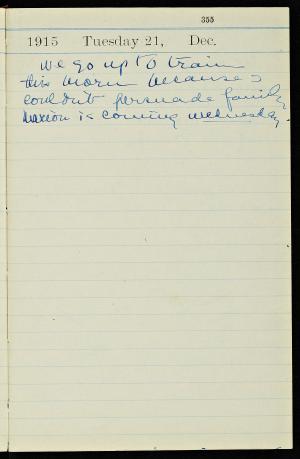 355
1915 Tuesday 21, Dec.
We go up to train
this morn because I
couldn't persuade family
Marion is coming Wednesday.